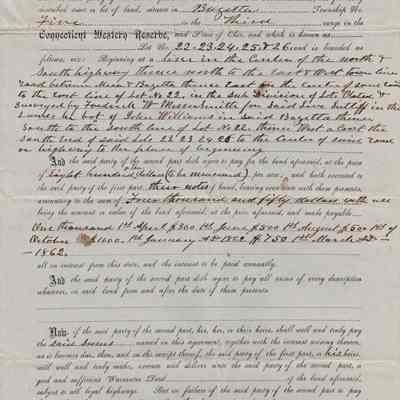 described tract or lot of land, situate in Bazetta Township No.
Five in the Third range in the
Connecticut Western Reserve, and State of Ohio, and which is known as
Lot No. 22-23-24-25 & 26 and is bounded as
follows, viz: Beginning at a in the Center of the north &
South highway thence north to the East & West town line
road between Mecca & Bazetta thence East on the Center of
to the East line of Lot No 22, in the Sub Division of Lot
Surveyed by Frederick W for Said Sutliff in the
of John Williams in Said Bazetta thence
South to the South line of Lot No 22. thence West along the
South end of said Lots 23 24 25 to the Center of some road
or highway to the place of beginning
And the said party of the second part doth agree to pay for the land aforesaid, at the price
of Eight hundred dollars (to be measured) per acre, and hath executed to
the said party of the first part, their notes of hand, bearing even date with these presents,
amounting to the sum of Four thousand and fifty dollars with use
being the amount or value of the land aforesaid, at the price aforesaid, and made payable
One thousand 1st April $300 1st June $500 1st August $500 1st of
October $1000. 1st January AD 1862 $750 1st March AD
1862.
all on interest from this date, and the interest to be paid annually.
And the said party of the second part doth agree to pay all taxes of every description
whatever, on said land from and after the date of these presents.
Now, if the said party of the second part, his, her, or their heirs, shall well and truly pay
the said sums named in this agreement, together with the interest arising thereon,
as it becomes due, then, and on the receipt thereof, the said party of the first part, or his heirs,
will well and truly make, execute and deliver unto the said party of the second part, a
good and sufficient Warrantee Deed of the land aforesaid,
subject to all legal highways. But on failure of the said party of the second part to pay